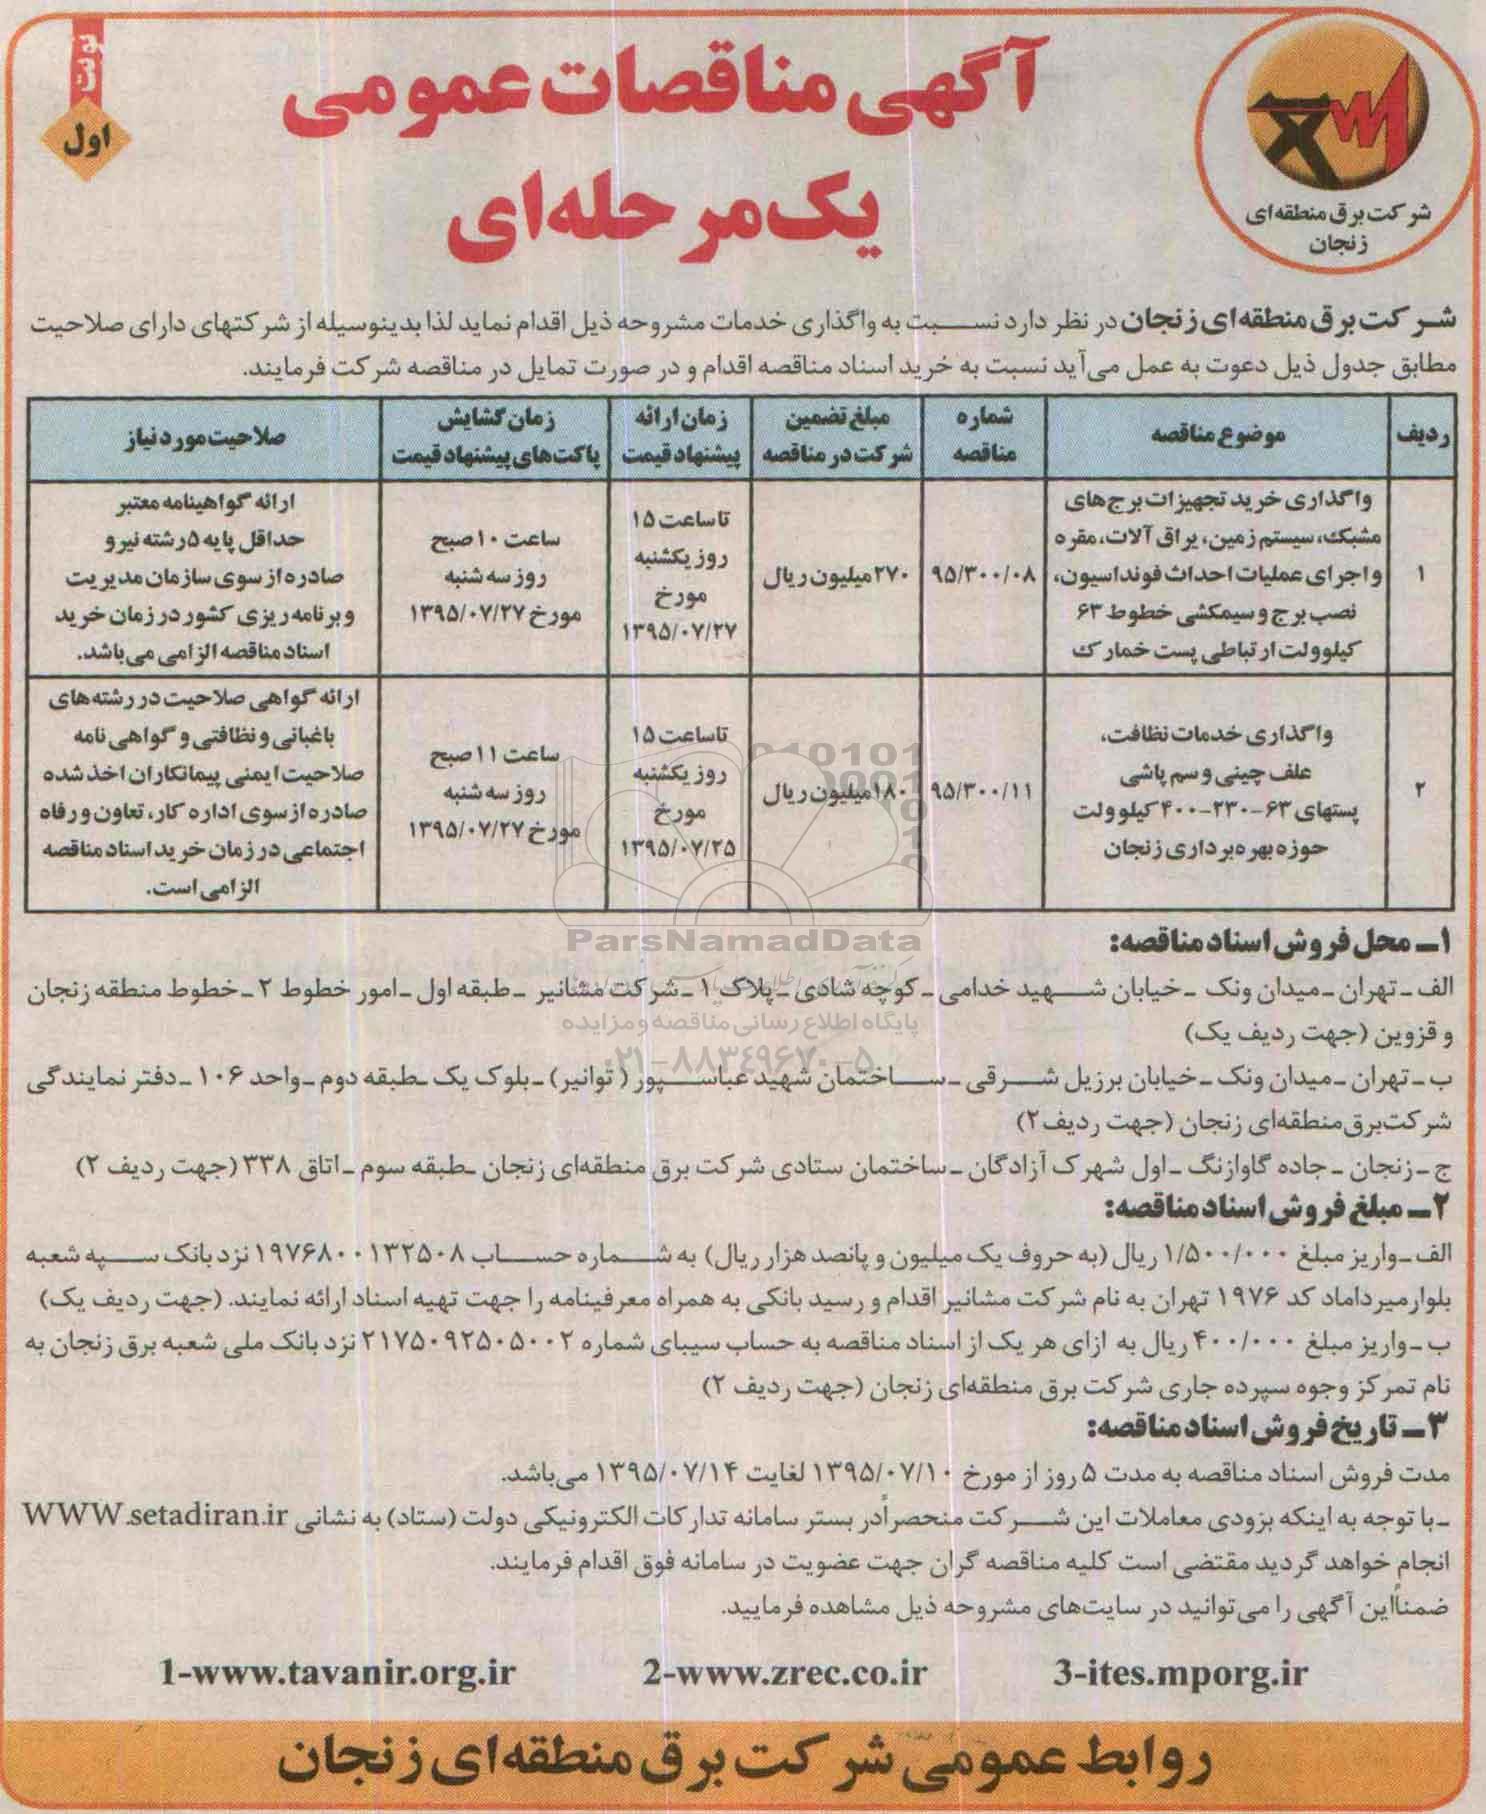 نوبت
اول
آگهی مناقصات عمومی
یک‌مرحله‌ای
شرکت برق منطقه‌ای
زنجان
شرکت برق منطقه‌ای زنجان در نظر دارد نسبت به واگذاری خدمات مشروحه ذیل اقدام نماید لذا بدینوسیله از شرکتهای دارای صلاحیت
مطابق جدول ذیل دعوت به عمل می‌آید نسبت به خرید اسناد مناقصه اقدام و در صورت تمایل در مناقصه شرکت فرمایند.
ردیف
موضوع مناقصه
شماره
مناقصه
مبلغ تضمین
شرکت در مناقصه
زمان ارائه
پیشنهاد قیمت
زمان گشایش
پاکت‌های پیشنهاد قیمت
صلاحیت مورد نیاز
۱
واگذاری خرید تجهیزات برج‌های
مشبک، سیستم زمین، یراق آلات، مقره
و اجرای عملیات احداث فونداسیون،
نصب برج و سیمکشی خطوط ۶۳
کیلوولت ارتباطی پست خمارک
۹۵/۳۰۰/۰۸
۲۷۰ میلیون ریال
تا ساعت ۱۵
روز یکشنبه
مورخ
۱۳۹۵/۰۷/۲۷
ساعت ۱۰ صبح
روز سه شنبه
مورخ ۱۳۹۵/۰۷/۲۷
ارائه گواهینامه معتبر
حداقل پایه ۵ رشته نیرو
صادره از سوی سازمان مدیریت
و برنامه ریزی کشور در زمان خرید
اسناد مناقصه الزامی می‌باشد.
۲
واگذاری خدمات نظافت،
علف چینی و سم پاشی
پستهای ۶۳-۲۳۰-۴۰۰ کیلوولت
حوزه بهره برداری زنجان
۹۵/۳۰۰/۱۱
۱۸۰ میلیون ریال
تا ساعت ۱۵
روز یکشنبه
مورخ
۱۳۹۵/۰۷/۲۵
ساعت ۱۱ صبح
روز سه شنبه
مورخ ۱۳۹۵/۰۷/۲۷
ارائه گواهی صلاحیت در رشته های
باغبانی و نظافتی و گواهی نامه
صلاحیت ایمنی پیمانکاران اخذ شده
صادره از سوی اداره کار، تعاون و رفاه
اجتماعی در زمان خرید اسناد مناقصه
الزامی است.
ParsNamadData
پایگاه اطلاع رسانی مناقصه و مزایده
۰۲۱-۸۸۳۴۹۶۷۰-۵
۱ـ محل فروش اسناد مناقصه:
الف ـ تهران ـ میدان ونک ـ خیابان شهید خدامی ـ کوچه شادی ـ پلاک ۱ ـ شرکت مشانیر ـ طبقه اول ـ امور خطوط ۲ ـ خطوط منطقه زنجان
و قزوین (جهت ردیف یک)
ب ـ تهران ـ میدان ونک ـ خیابان برزیل شرقی ـ ساختمان شهید عباسپور (توانیر) ـ بلوک یک ـ طبقه دوم ـ واحد ۱۰۶ ـ دفتر نمایندگی
شرکت برق منطقه‌ای زنجان (جهت ردیف ۲)
ج ـ زنجان ـ جاده گاوازنگ ـ اول شهرک آزادگان ـ ساختمان ستادی شرکت برق منطقه‌ای زنجان ـ طبقه سوم ـ اتاق ۳۳۸ (جهت ردیف ۲)
۲ـ مبلغ فروش اسناد مناقصه:
الف ـ واریز مبلغ ۱/۵۰۰/۰۰۰ ریال (به حروف یک میلیون و پانصد هزار ریال) به شماره حساب ۱۹۷۶۸۰۰۱۳۲۵۰۸ نزد بانک سپه شعبه
بلوار میرداماد کد ۱۹۷۶ تهران به نام شرکت مشانیر اقدام و رسید بانکی به همراه معرفینامه را جهت تهیه اسناد ارائه نمایند. (جهت ردیف یک)
ب ـ واریز مبلغ ۴۰۰/۰۰۰ ریال به ازای هر یک از اسناد مناقصه به حساب سیبای شماره ۲۱۷۵۰۹۲۵۰۵۰۰۲ نزد بانک ملی شعبه برق زنجان به
نام تمرکز وجوه سپرده جاری شرکت برق منطقه‌ای زنجان (جهت ردیف ۲)
۳ـ تاریخ فروش اسناد مناقصه:
مدت فروش اسناد مناقصه به مدت ۵ روز از مورخ ۱۳۹۵/۰۷/۱۰ لغایت ۱۳۹۵/۰۷/۱۴ می‌باشد.
ـ با توجه به اینکه بزودی معاملات این شرکت منحصراً در بستر سامانه تدارکات الکترونیکی دولت (ستاد) به نشانی WWW.setadiran.ir
انجام خواهد گردید مقتضی است کلیه مناقصه گران جهت عضویت در سامانه فوق اقدام فرمایند.
ضمناً این آگهی را می‌توانید در سایت‌های مشروحه ذیل مشاهده فرمایید.
1-www.tavanir.org.ir
2-www.zrec.co.ir
3-ites.mporg.ir
روابط عمومی شرکت برق منطقه‌ای زنجان